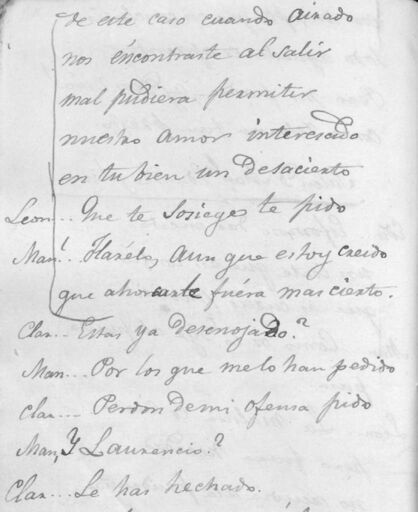 de este caso cuando airado
nos éncontraste al salir
mal pudiera permitir
nuestro amor interesado
en tu bien un desacierto
Leon... Que te sosieges te pido
Man.l Harélo, aun que estoy creido
que ahorcarle fuéra mas cierto.
Clar... Estas ya desenojado?
Man... Por los que melo han pedido
Clar.... Perdon de mi ofensa pido
Man, Y Laurencio?
Clar... Le has hechado.